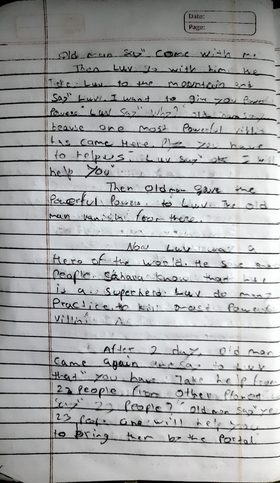 Date:
Page:
Old man say" Come with me
Then Luv go with him he
Take Luv to the mountain and
Say" Luv. I want to give you Power
Powers Luv Say" Why? old man say
beause one most Powerful villin
has came Here. Plz you have
to help us. Luv say" ok I will
help You"
Then oldman gave me
Powerful Powers to Luv The old
man vanish from there.
Now Luv was a
Hero of the world. He
People. know that Luv
is a Superhero. Luv do more
Practice to kill most Powerful
Villin
After 2 day, old man
came again and say to Luv
that "you have Take help from
23 People From other Planet
say" 23 People? "old man say" yes
23 People one will help you
to bring them be the Portal